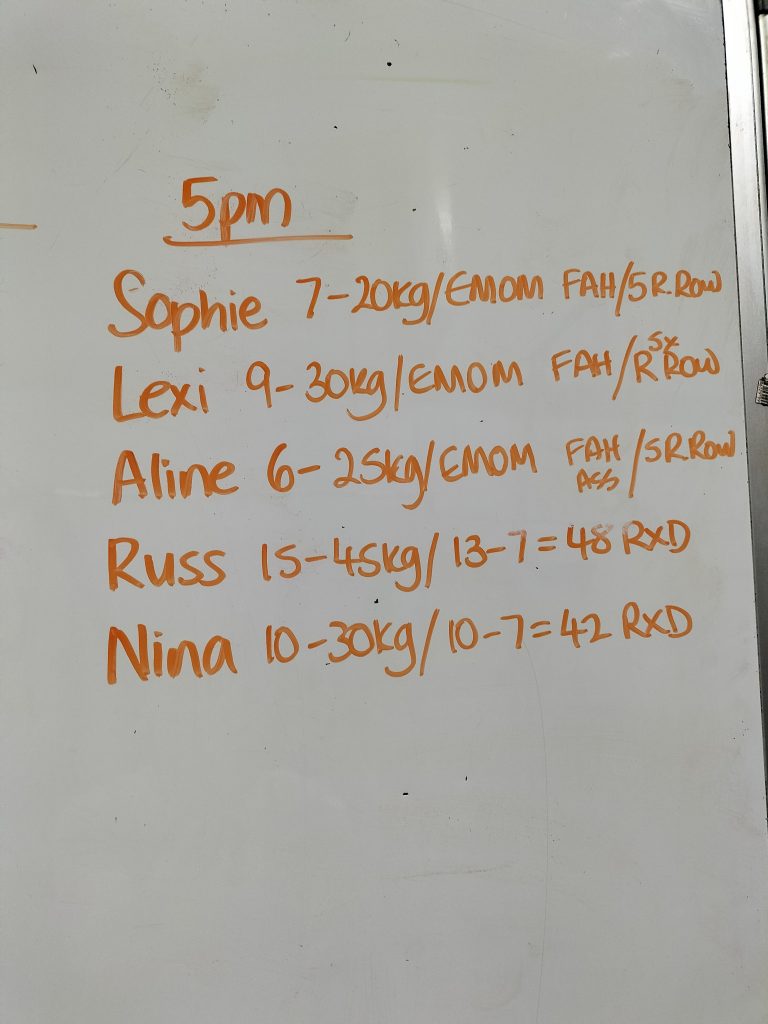 5pm
Sophie 7-20kg/EMOM FAH/5R.Row
Lexi 9-30kg/EMOM FAH/R 5x Row
Aline 6-25kg/EMOM FAH ASS/5R.Row
Russ 15-45kg/13-7=48 RXD
Nina 10-30kg/10-7=42 RXD